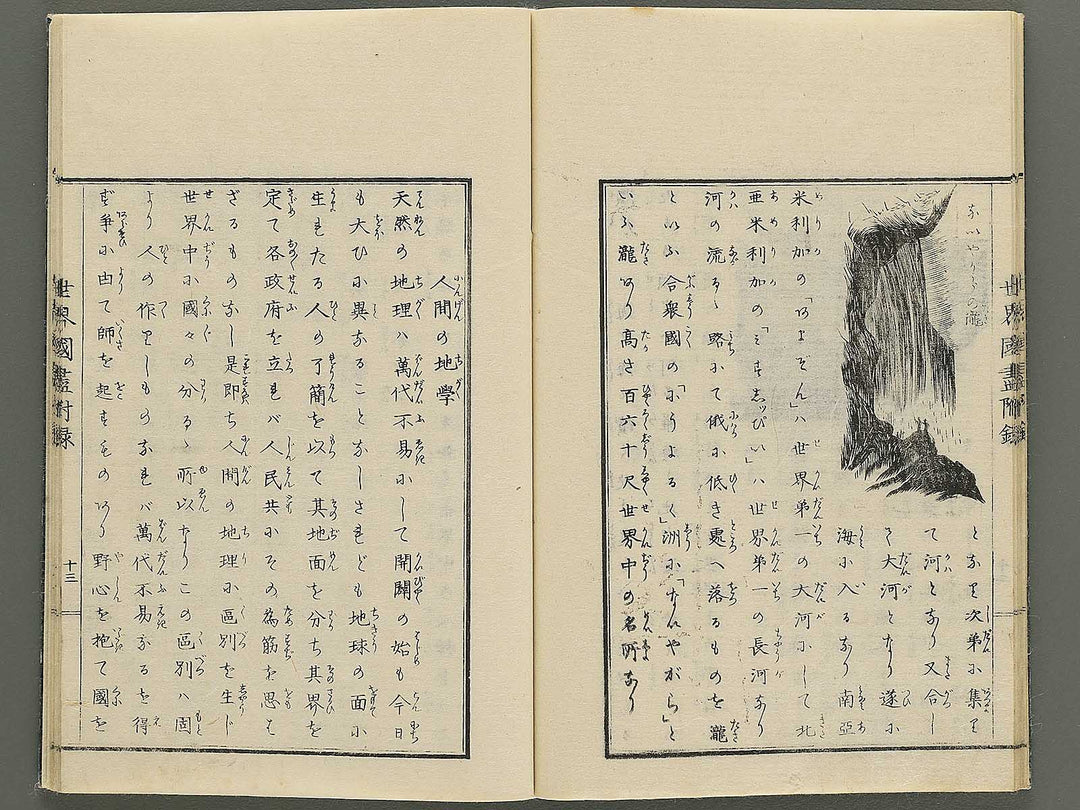 世界國盡附録
ないやがらの瀧
となり次第に集り
て河となり又合し
て大河となり遂に
海に入るなり南亞
米利加の「あまそん」ハ世界第一の大河にして北
亜米利加の「みすしッぴい」ハ世界第一の長河なり
河の流るゝ路にて俄に低き處へ落るものを瀧
といふ合衆國の「にうよるく」洲に「ないやがら」と
いふ瀧あり高さ百六十尺世界中の名所なり
人間の地學
天然の地理ハ萬代不易にして開闢の始も今日
も大ひに異なることなしされども地球の面に
生れたる人の了簡を以て其地面を分ち其界を
定て各政府を立れバ人民共にその為筋を思は
ざるものなし是即ち人間の地理に區別を生じ
世界中に國々の分るゝ所以なりこの區別ハ固
より人の作りしものなれバ萬代不易なるを得
ず爭に由て師を起すものあり野心を抱て國を
世界國盡附録
十三